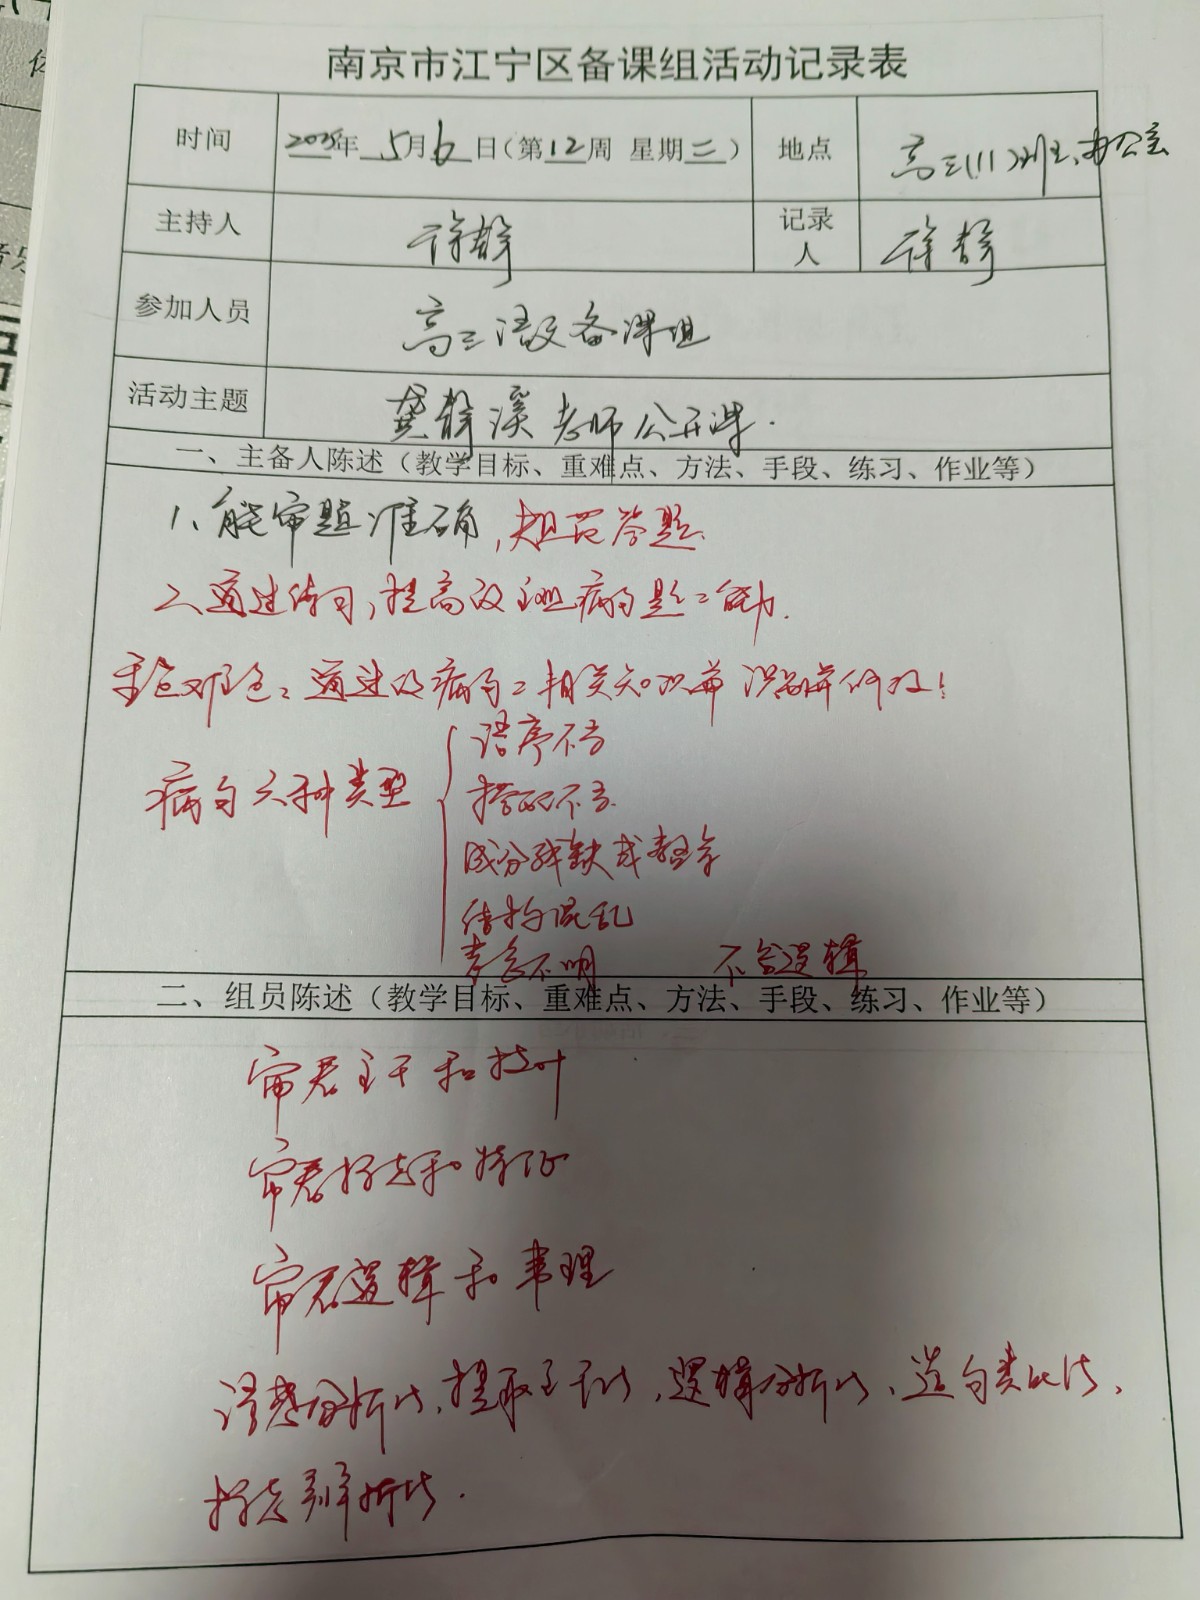 南京市江宁区备课组活动记录表
时间 2025年5月6日(第12周 星期二) 地点 高三(11)班、办公室
主持人 徐静 记录人 徐静
参加人员 高三语文备课组
活动主题 龚静溪老师公开课.
一、主备人陈述（教学目标、重难点、方法、手段、练习、作业等）
1、能审题准确,规范答题.
2、通过练习,提高改病句题之能力.
重难点: 通过改病句之相关知识 识别并修改!
病句六种类型
语序不当
搭配不当.
成分残缺或赘余
结构混乱
表意不明 不合逻辑
二、组员陈述（教学目标、重难点、方法、手段、练习、作业等）
审君主干和枝叶
审君标志和特征
审君逻辑和事理
语感分析法,提取主干法,逻辑分析法、造句类比法、
标志辨析法.